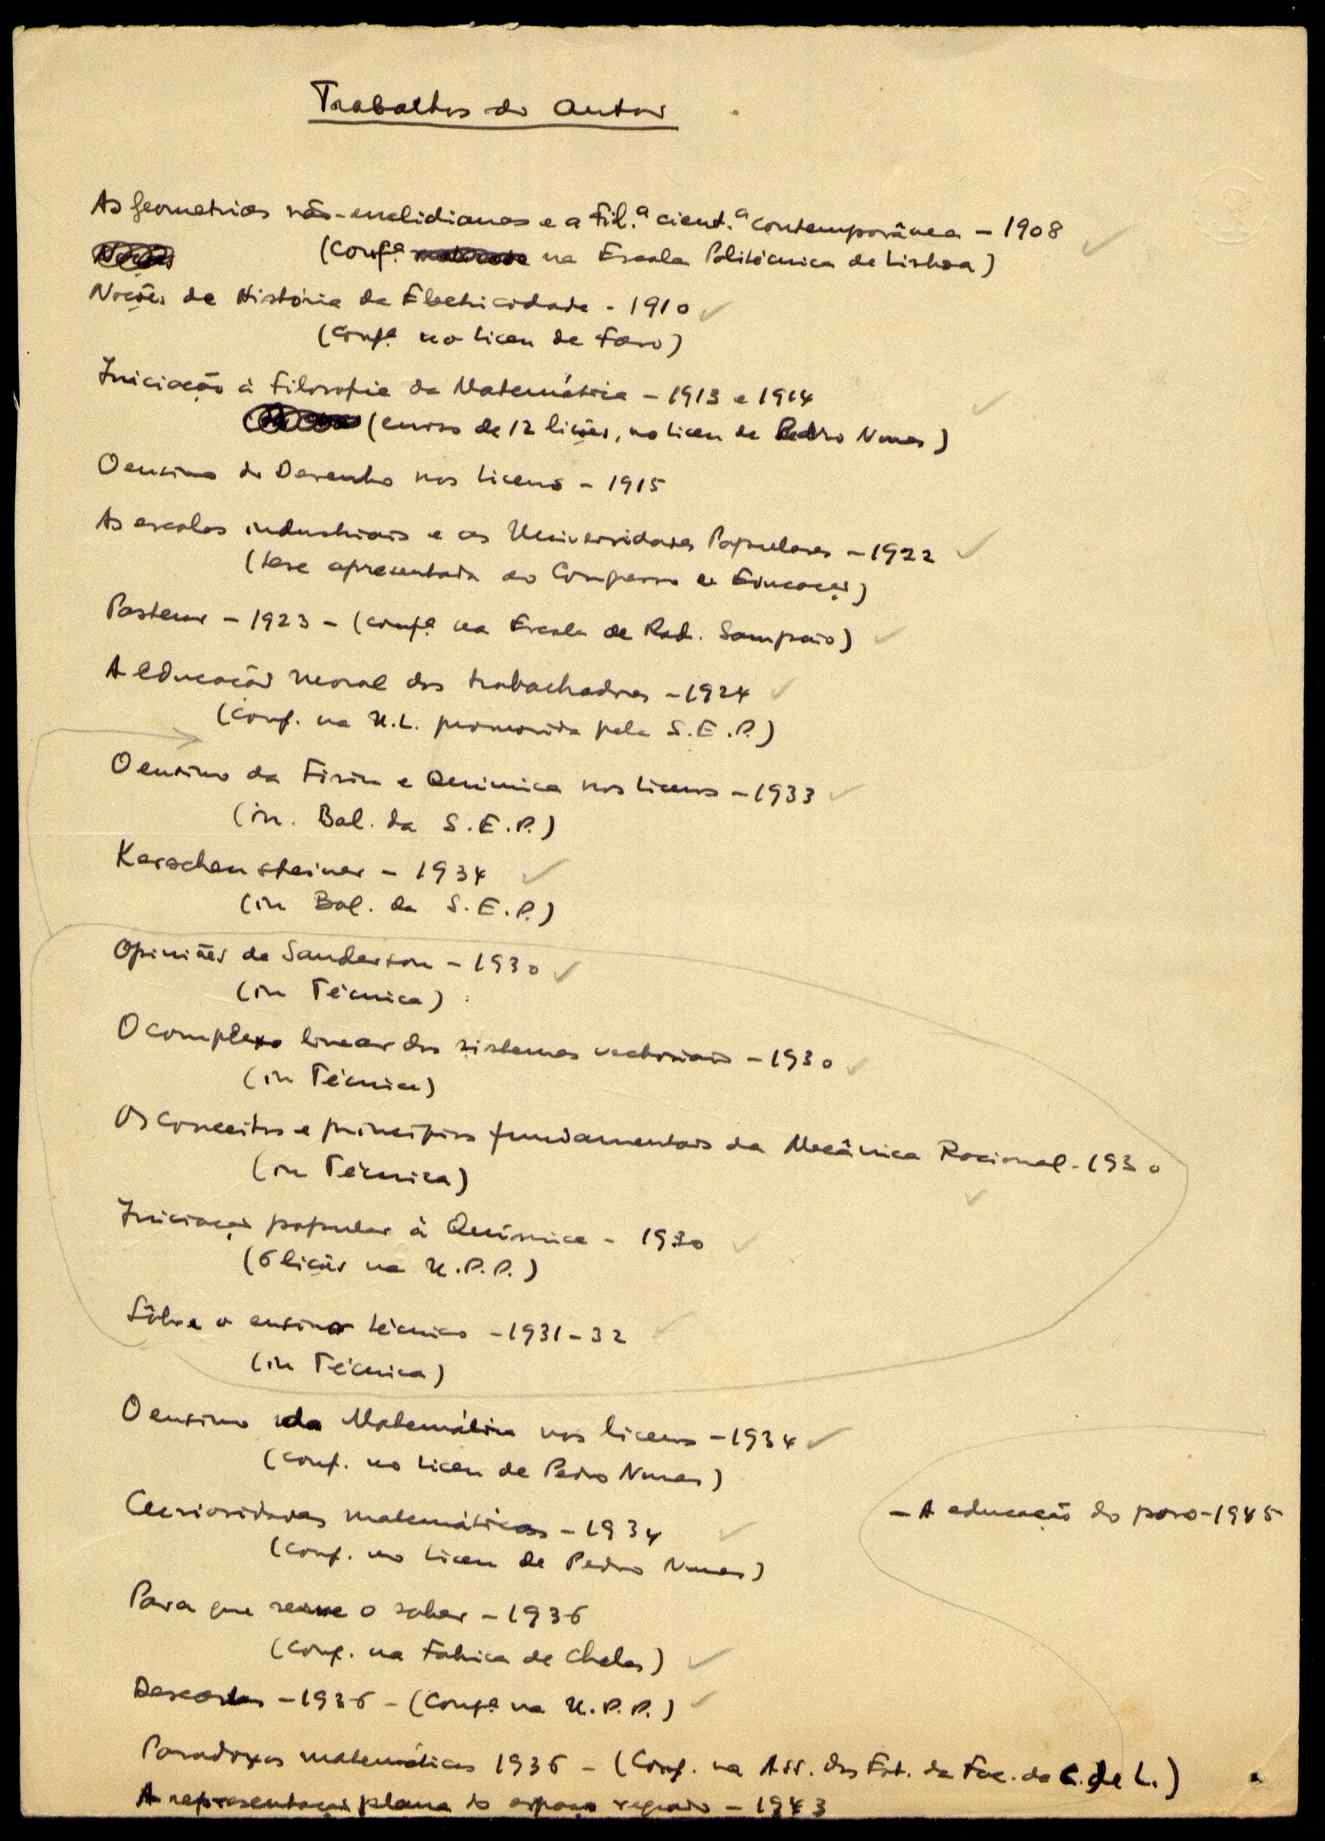 Trabalhos do autor
As geometrias não-euclidianas e a Fil.ª cient.ª contemporânea - 1908
(Confª na Escola Politécnica de Lisboa)
Noções de História da Electricidade - 1910
(Confª no Liceu de Faro)
Iniciação à Filosofia da Matemática - 1913 e 1914
(curso de 12 lições, no Liceu de Pedro Nunes)
O ensino do Desenho nos Liceus - 1915
As escolas industriais e as Universidades Populares - 1922
(tese apresentada ao Congresso de Educação)
Pasteur - 1923 - (confª na Escola de Rod. Sampaio)
A educação moral dos trabalhadores - 1924
(conf. na U.L. promovida pela S.E.P.)
O ensino da Física e Química nos Liceus - 1933
(in. Bol. da S.E.P.)
Kerschensteiner - 1934
(in Bol. da S.E.P.)
Opiniões de Sanderson - 1930
(in Técnica)
O complexo linear dos sistemas vectoriais - 1930
(in Técnica)
Os conceitos e princípios fundamentais da Mecânica Racional - 1930
(in Técnica)
Iniciação popular à Química - 1930
(6 lições na U.P.P.)
Sôbre o ensino técnico - 1931-32
(in Técnica)
O ensino da Matemática nos liceus - 1934
(conf. no Liceu de Pedro Nunes)
Curiosidades matemáticas - 1934
(conf. no Liceu de Pedro Nunes)
- A educação do povo - 1945
Para que serve o saber - 1936
(conf. na Fábrica de Chelas)
Descartes - 1936 - (Confª na U.P.P.)
Paradoxos matemáticos 1936 - (Conf. na Ass. dos Est. da Fac. de C. de L.)
A representação plana do espaço - 1943